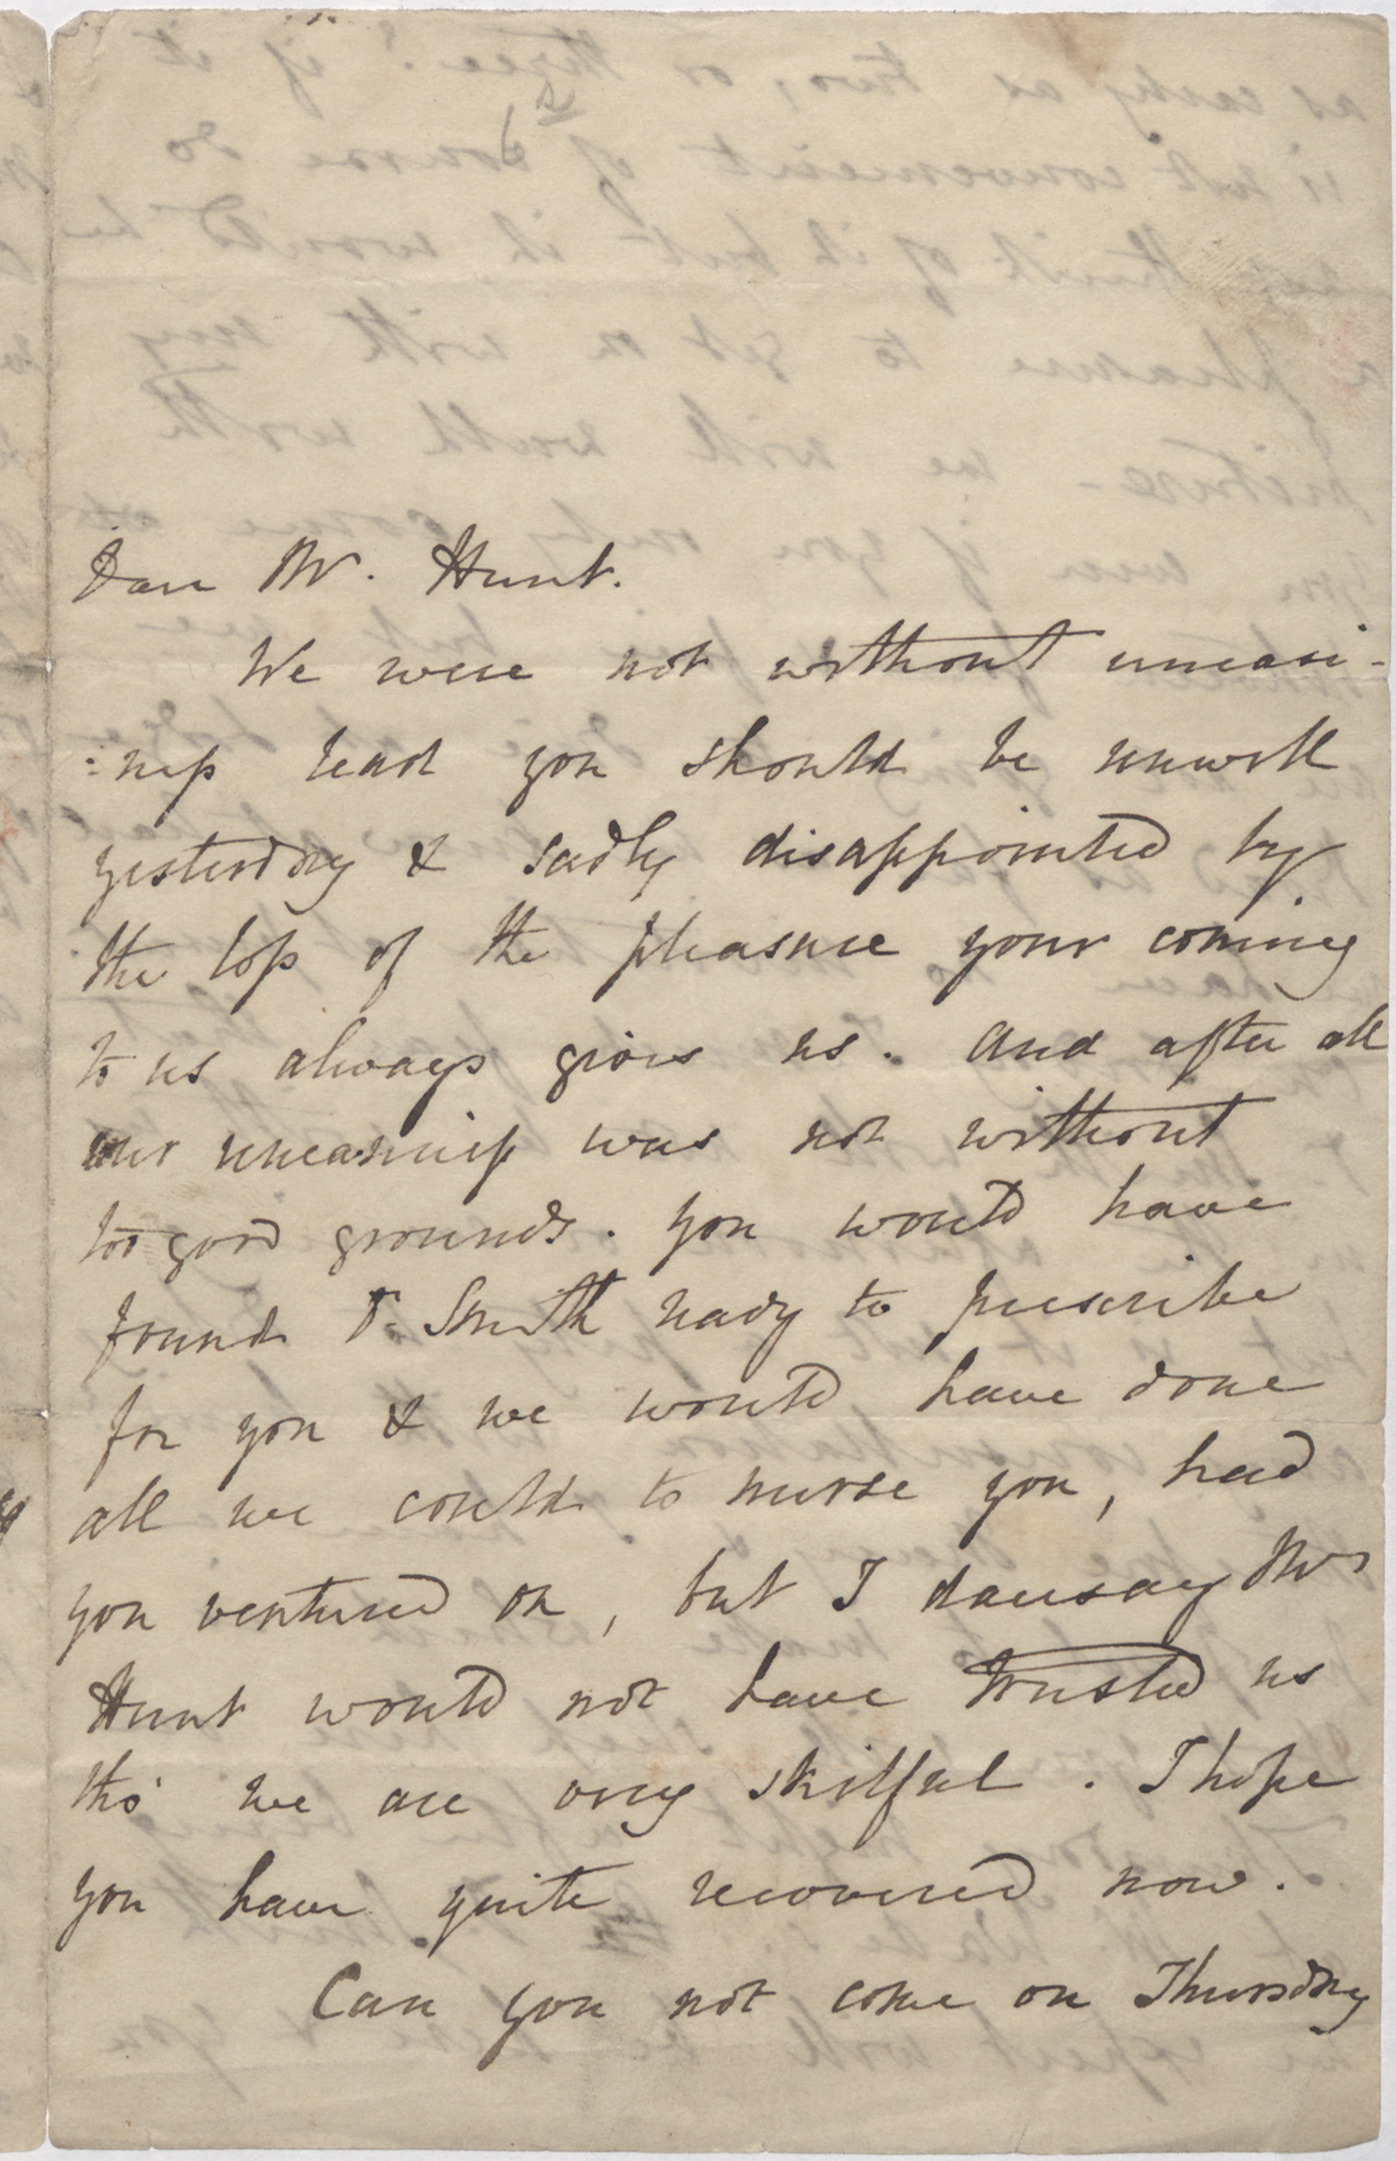 Dear Mr. Hunt.
We were not without uneasi-
:ness least you should be unwell
yesterday & sadly disappointed by
the loss of the pleasure your coming
to us always gives us. And after all
our uneasiness was not without
too good grounds. You would have
found Dr. Smith ready to prescribe
for you & we would have done
all we could to nurse you, had
you ventured on, but I daresay Mrs
Hunt would not have trusted us
tho' we are very skilful. I hope
you have quite recovered now.
Can you not come on Thursday